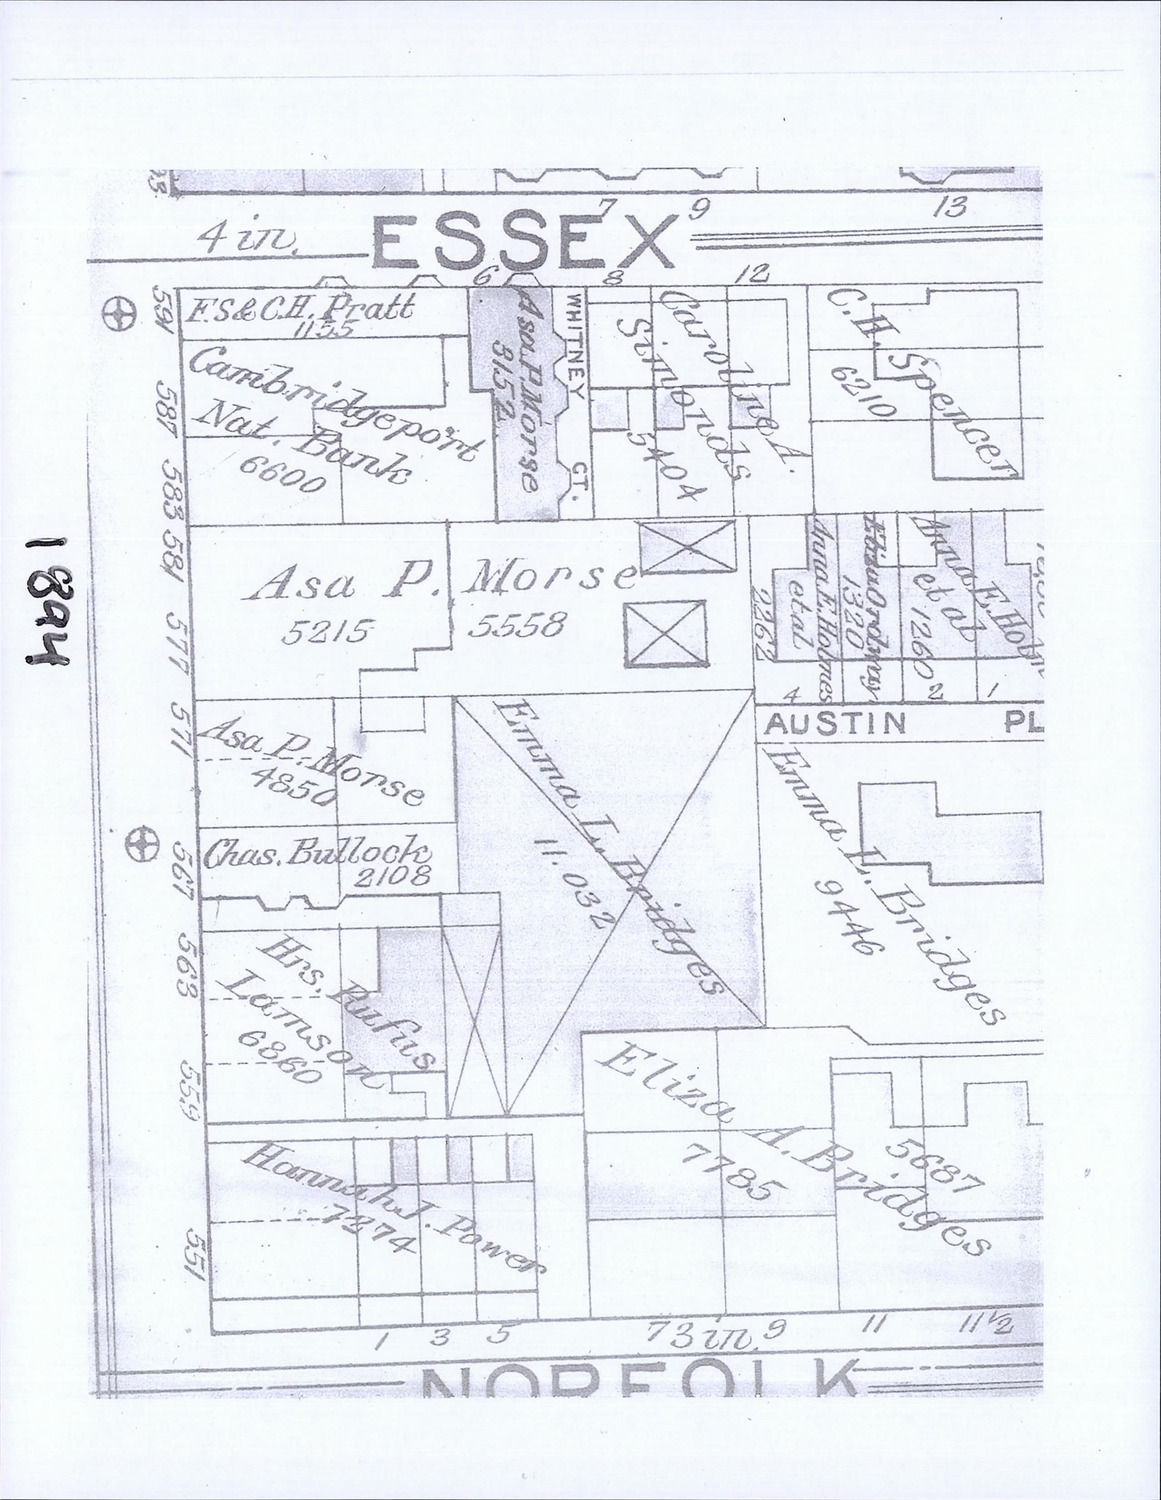 7 9 13
4 in. ESSEX
6 8 12
591
F.S & C.H. Pratt
1155
Asa P. Morse
3152
WHITNEY CT.
Caroline A.
Simonds
5404
C.H. Spencer
6210
Cambridgeport
Nat. Bank
6600
587
583
581
Asa P. Morse
5215 5558
577
2262
Anna E. Holmes
et al
4
1320
Anna E. Hol
et al
1260
2
1
AUSTIN PL
1894
571
Asa P. Morse
4850
Emma L. Bridges
11.032
Emma L. Bridges
9446
567
Chas. Bullock
2108
563
Hrs. Rufus
Lamson
6860
559
Eliza A. Bridges
7785
5687
Hannah J. Power
7274
551
1 3 5 7 3 in. 9 11 11 1/2
NORFOLK